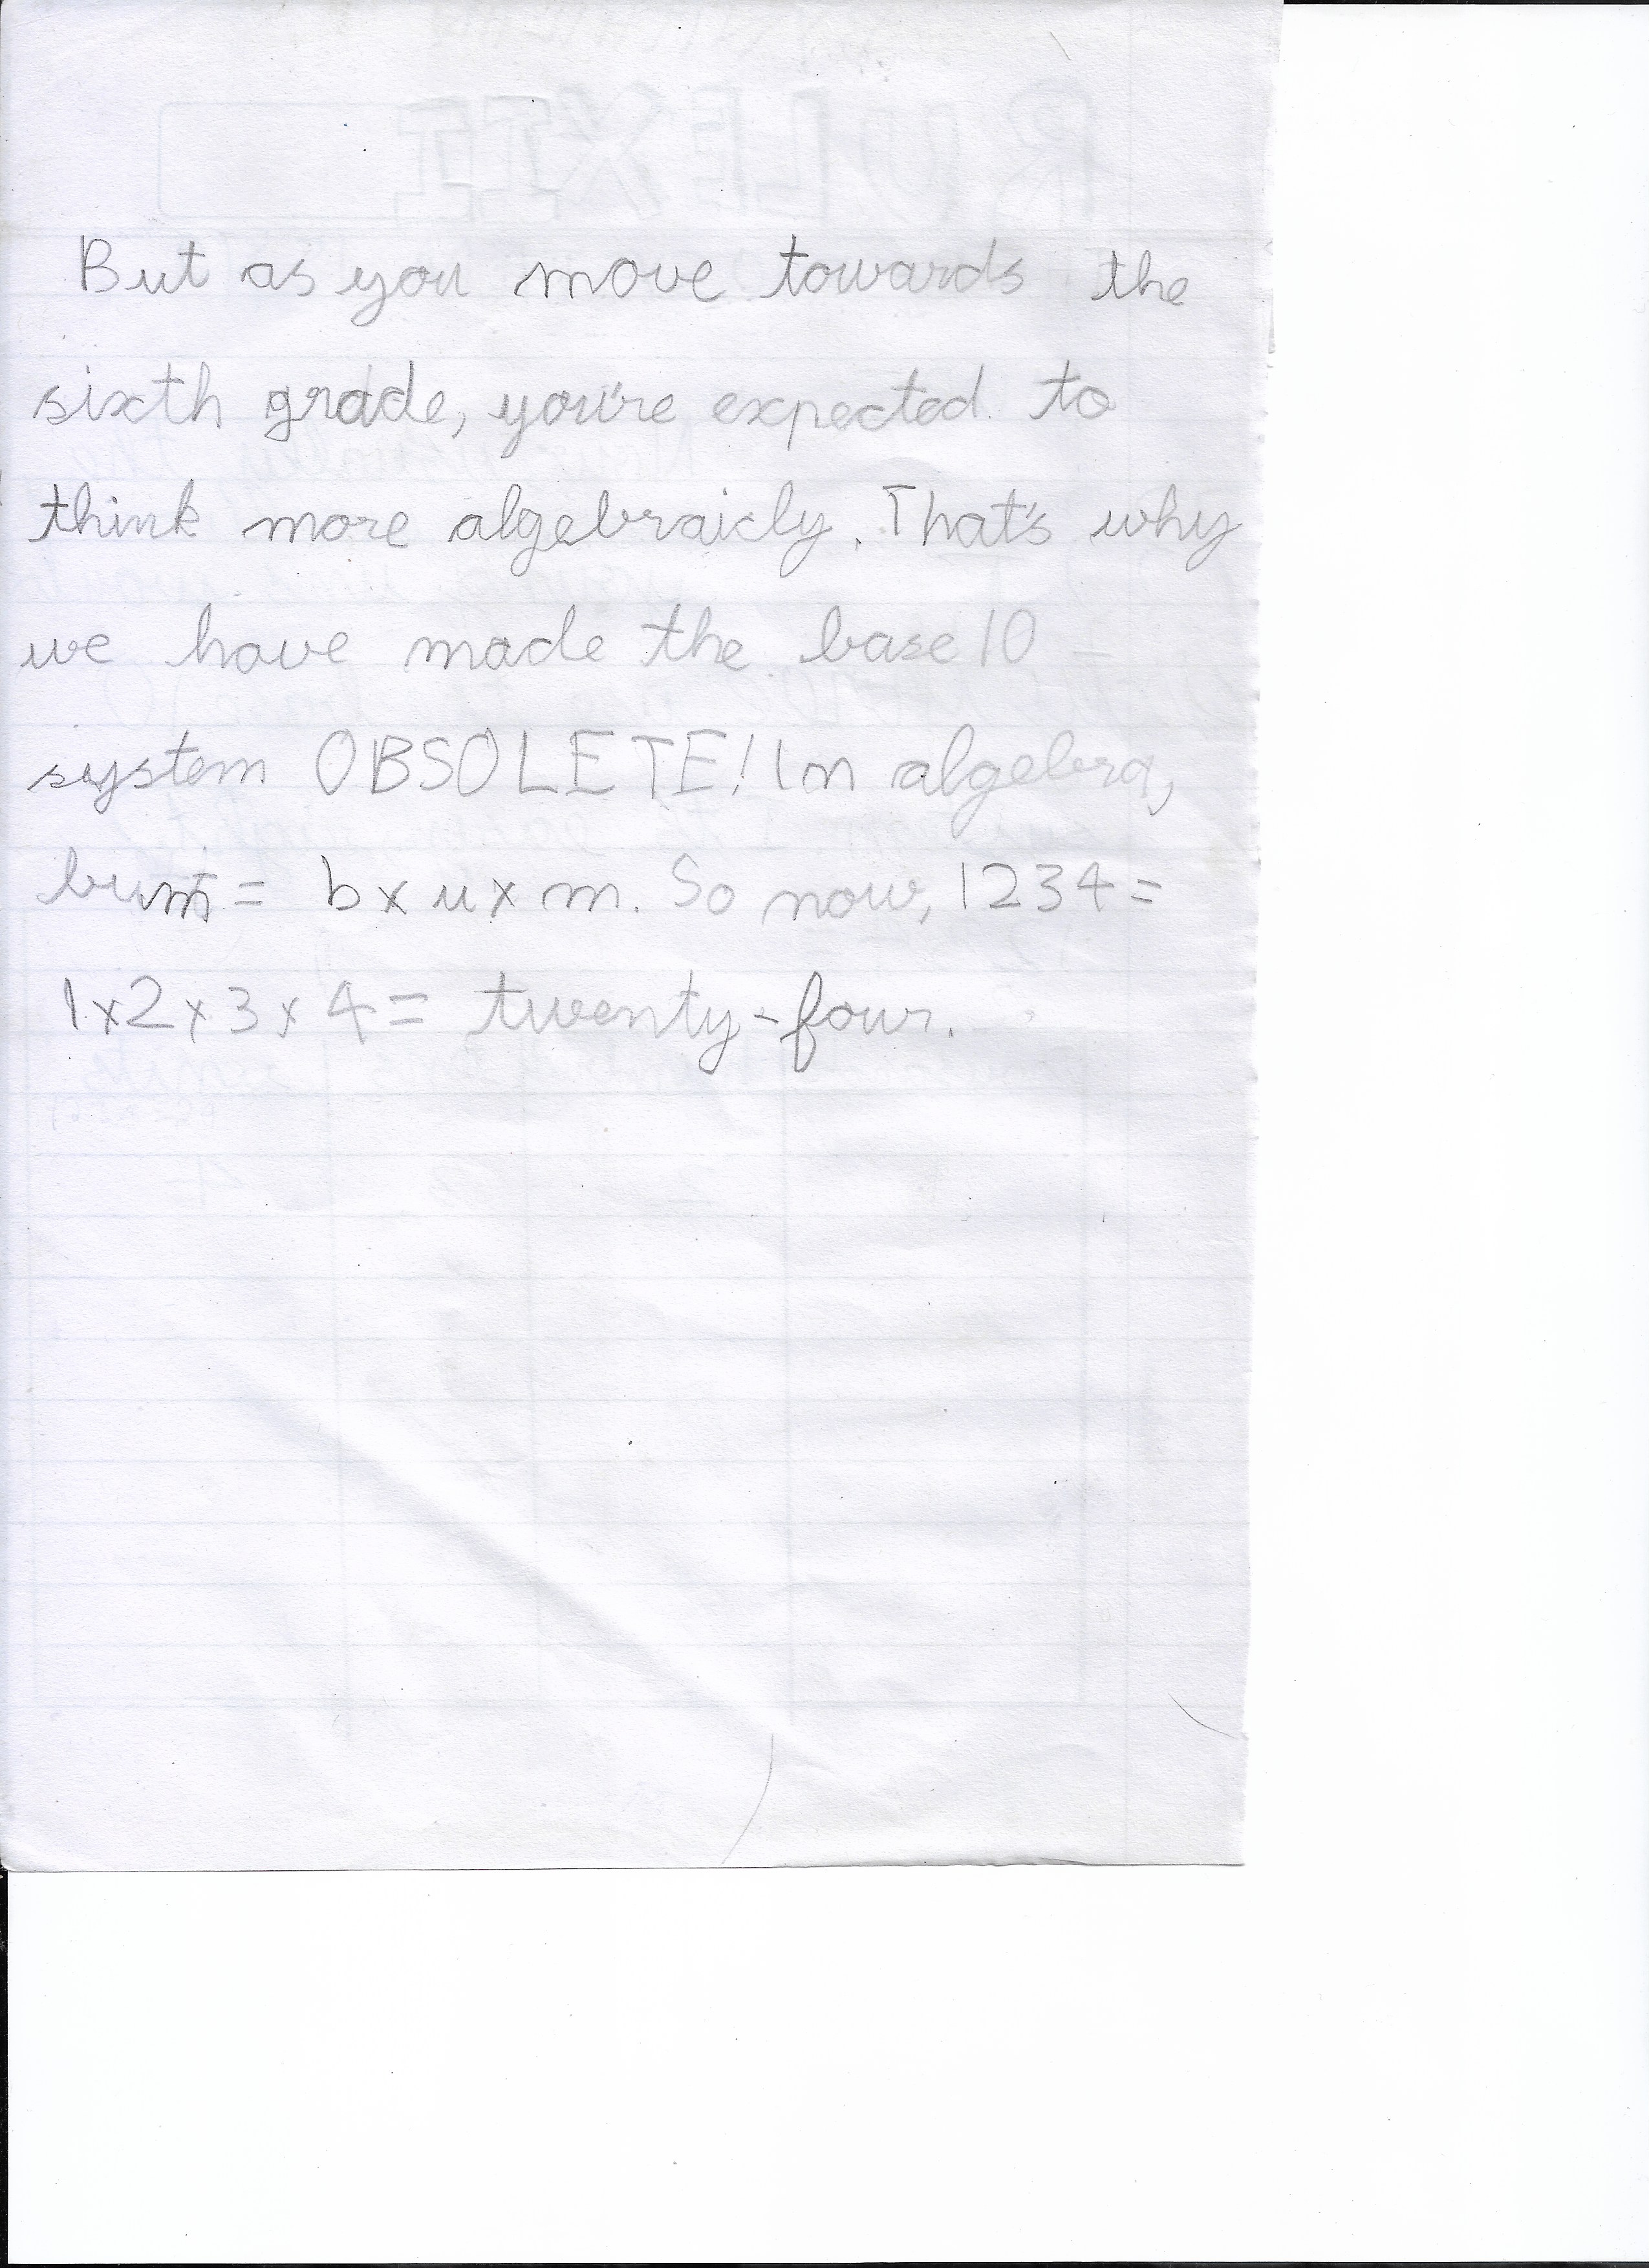 But as you move towards the
sixth grade, you're expected to
think more algebraicly. That's why
we have made the base 10 -
system OBSOLETE! In algebra,
bum = b x u x m. So now, 1234 =
1x2x3x4= twenty-four.